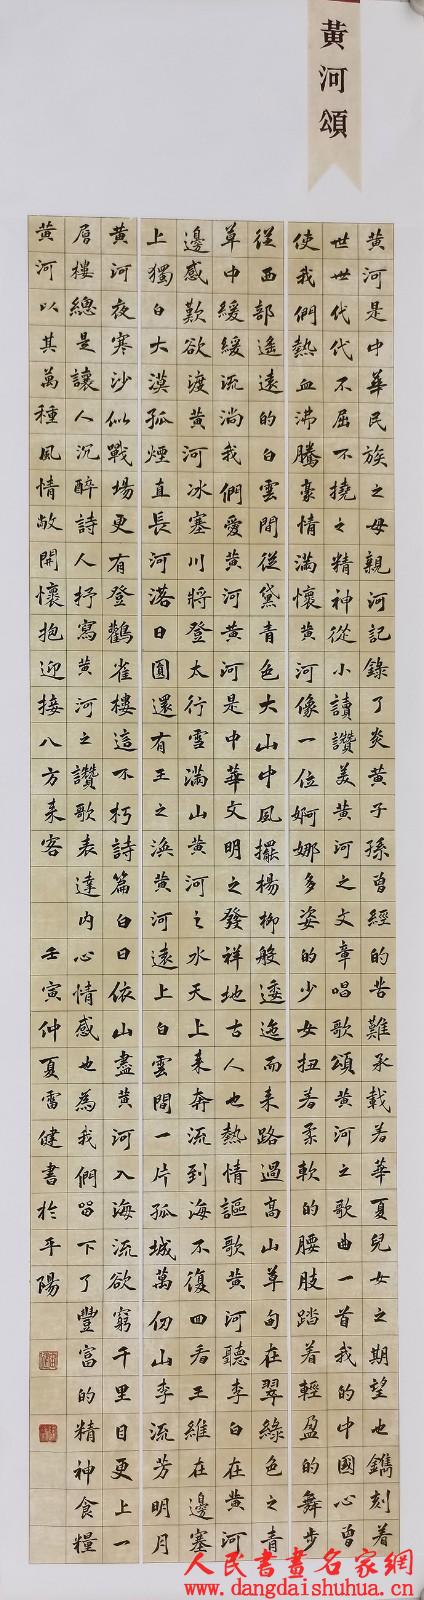 黃河頌
黃河是中華民族之母親河記錄了炎黃子孫曾經的苦難承載着華夏兒女之期望也鐫刻着
世世代代不屈不撓之精神從小讀讚美黃河之文章唱歌頌黃河之歌曲一首我的中國心曾
使我們熱血沸騰豪情滿懷黃河像一位婀娜多姿的少女扭着柔軟的腰肢踏着輕盈的舞步
從西部遙遠的白雲間從黛青色大山中風擺楊柳般逶迤而來路過高山草甸在翠綠色之青
草中緩緩流淌我們愛黃河黃河是中華文明之發祥地古人也熱情謳歌黃河聽李白在黃河
邊感歎欲渡黃河冰塞川將登太行雪滿山黃河之水天上來奔流到海不復回看王維在邊塞
上獨白大漠孤煙直長河落日圓還有王之渙黃河遠上白雲間一片孤城萬仞山李流芳明月
黃河夜寒沙似戰場更有登鸛雀樓這不朽詩篇白日依山盡黃河入海流欲窮千里目更上一
層樓總是讓人沉醉詩人抒寫黃河之讚歌表達內心情感也為我們留下了豐富的精神食糧
黃河以其萬種風情敞開懷抱迎接八方來客 壬寅仲夏雷健書於平陽
人民書畫名家網
www.dangdaishuhua.cn